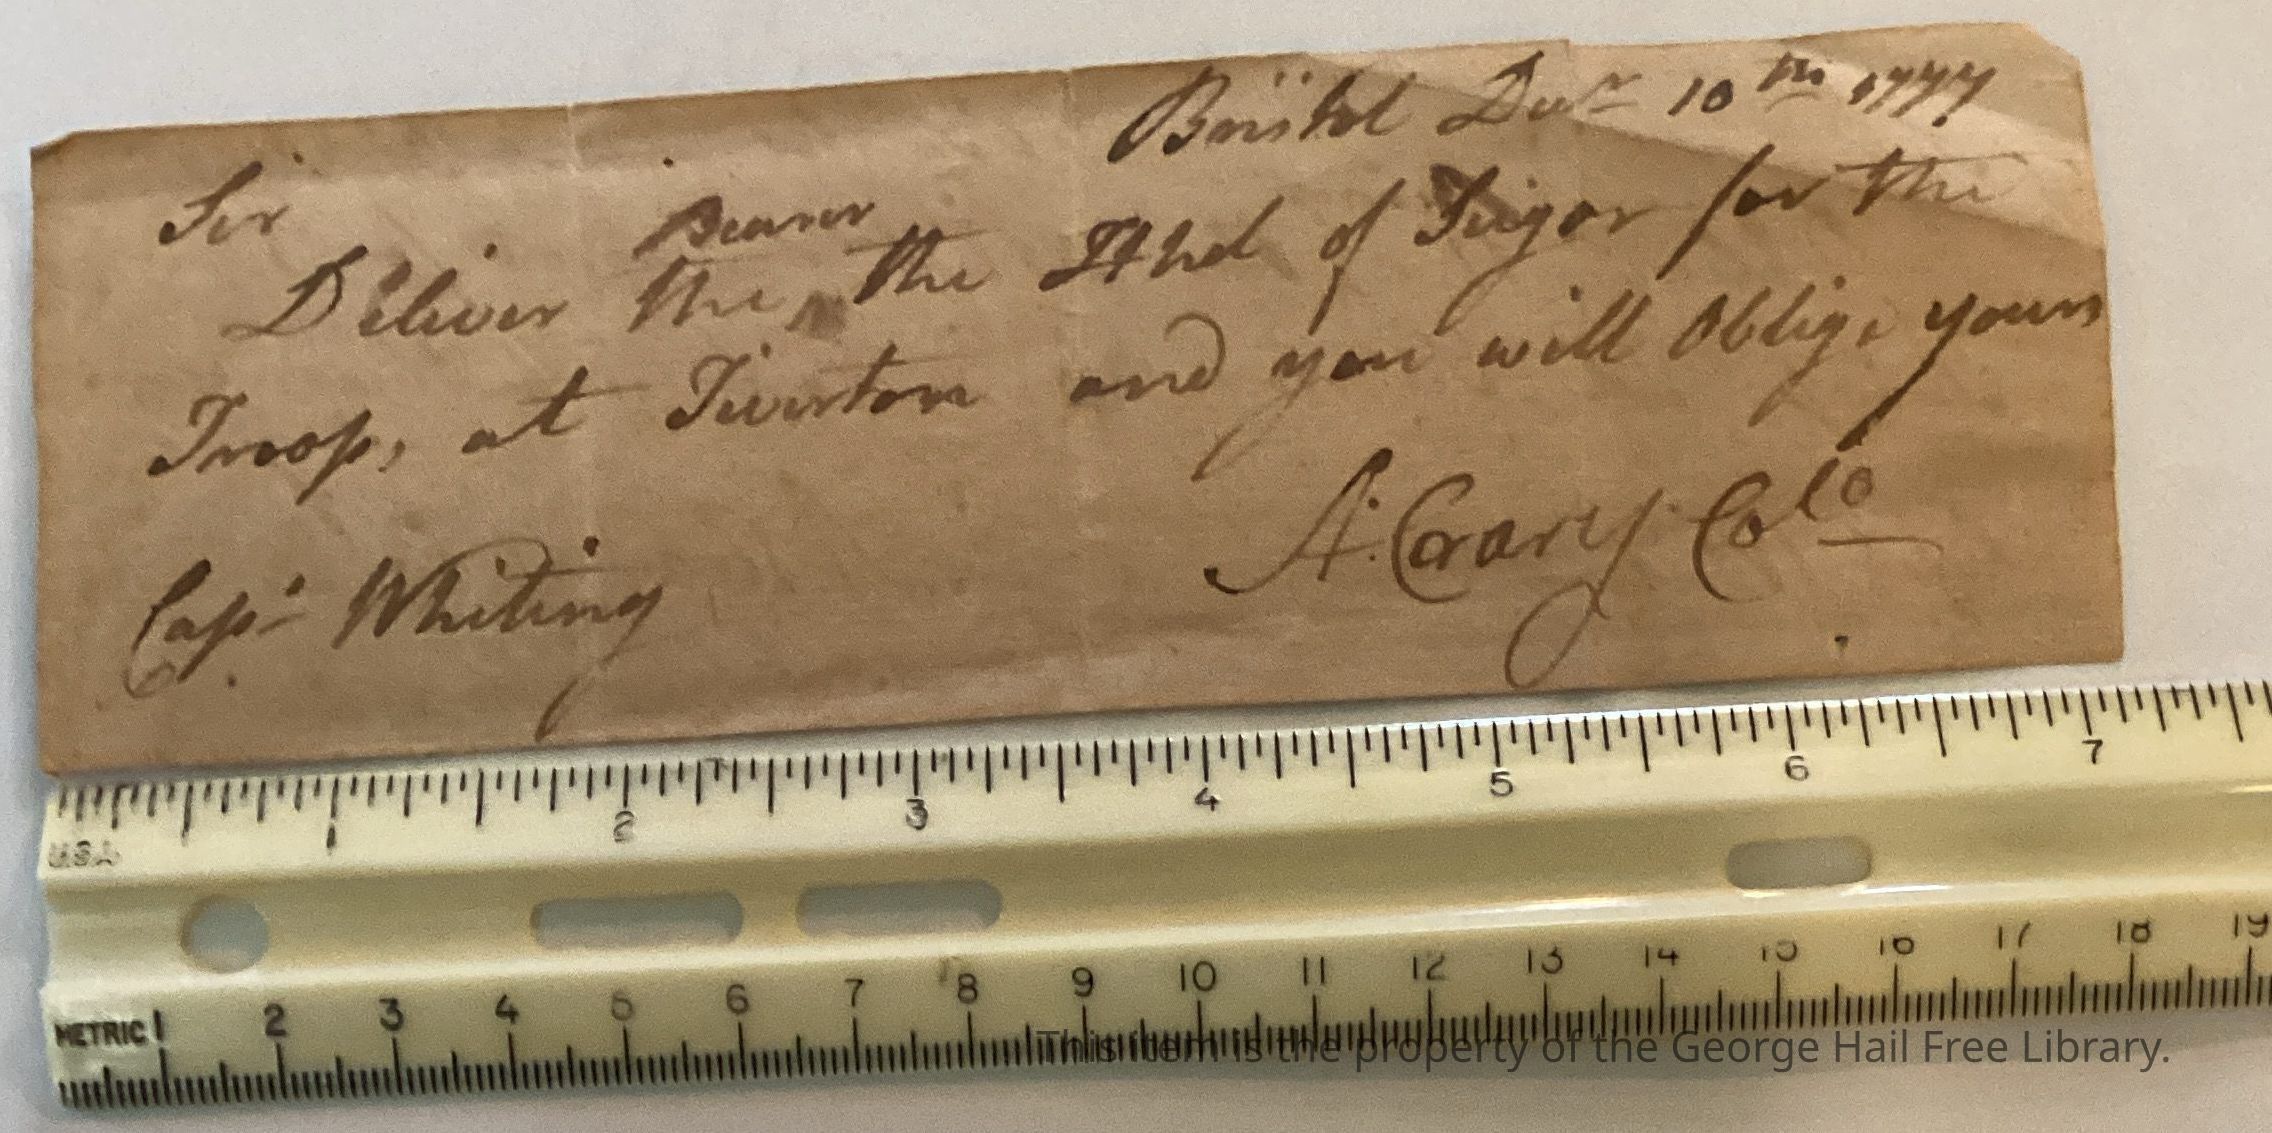 Bristol Decr 10th 1777
Sir
Bearer
Deliver the the Hhd of Suger for the
Troops, at Tiverton and you will Oblige yours
A. Crary Colo
Capt Whiting
USA
1 2 3 4 5 6 7
METRIC 1 2 3 4 5 6 7 8 9 10 11 12 13 14 15 16 17 18 19
This item is the property of the George Hail Free Library.